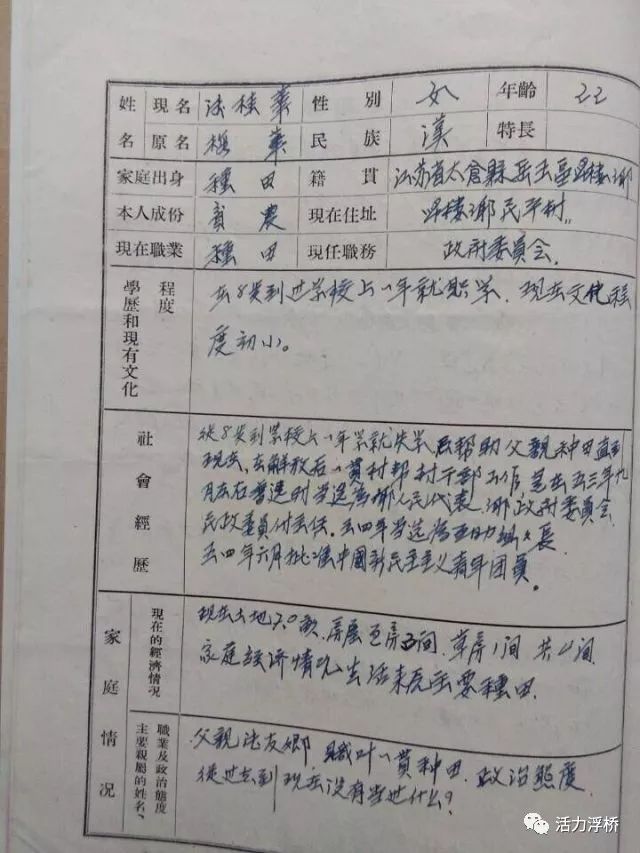 姓名 現名 沈桂華 性別 女 年齡 22
原名 桂華 民族 漢 特長
家庭出身 種田 籍貫 江苏省太倉縣岳王區歸樓鄉
本人成份 貧農 現在住址 歸樓鄉民平村
現在職業 種田 現任職務 政府委員会
學歷和現有文化程度
在8岁到过学校上一年就
学.现在文化程
度初小。
社會經歷
從8岁到学校上一年学就失学后帮助父親种田直到
现在.在解放后一貫村帮村干部工作 至在五三年九
月在普選时当选为鄉人民代表.鄉政府委員会
民政委員付主任.五四年当选为互助組組長
五四年六月批准中國新民主主义青年团員。
家庭情况
現在的經濟情况
现在土地7.0亩,房屋瓦房3间.草房1间 共4间
家庭经济情况生活来源主要種田
主要親屬的姓名、職業及政治態度
父親沈友鄉 職叶一貫种田.政治態度
從过去到现在没有当过什么?
活力浮桥